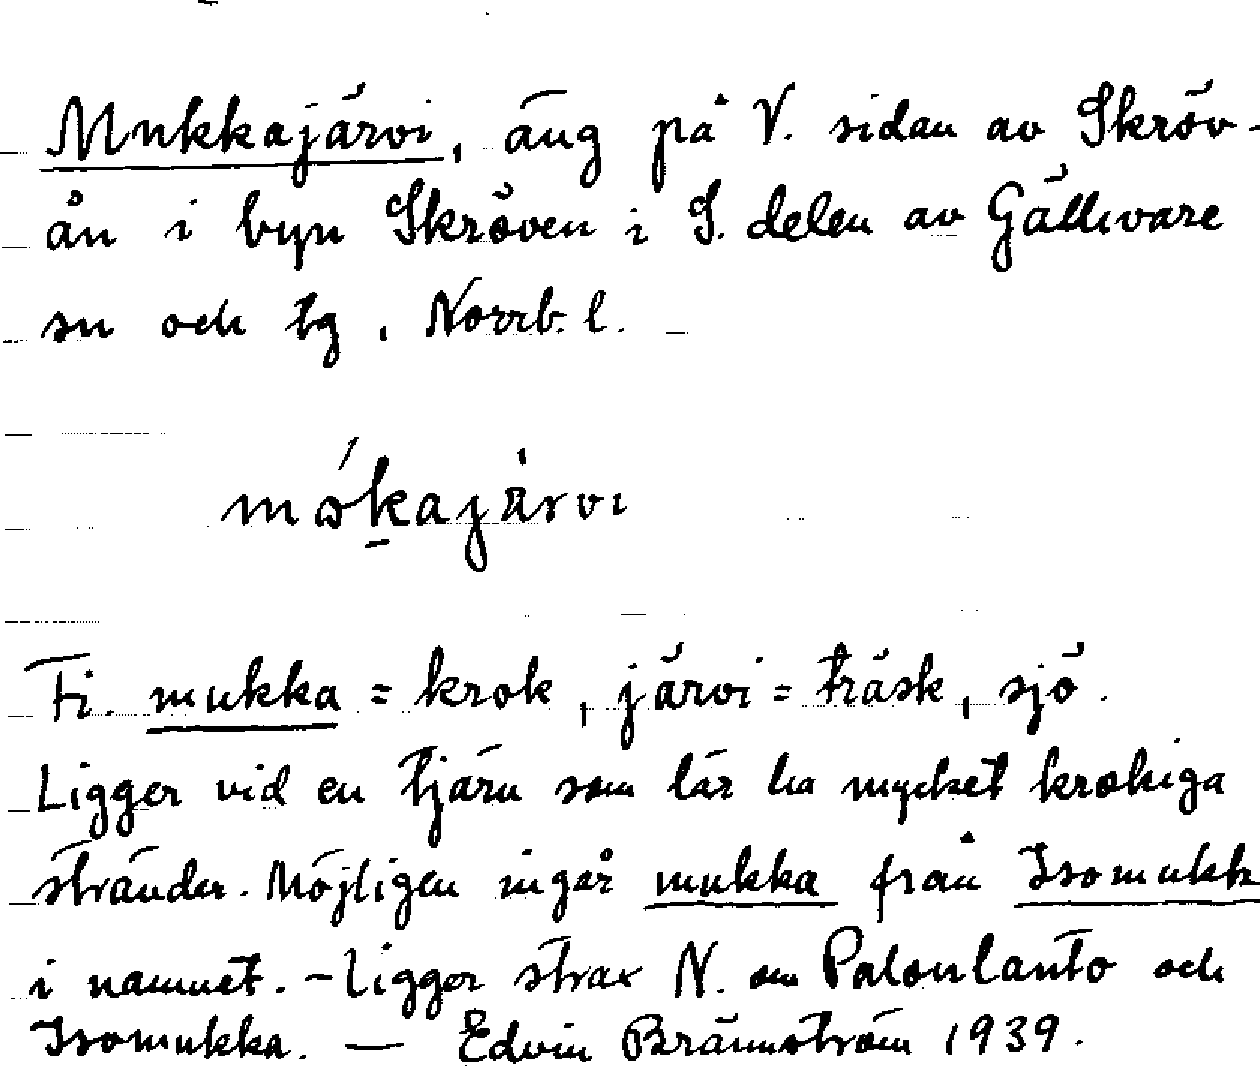 Mukkajärvi, äng på V. sidan av Skröv-
ån i byn Skröven i S. delen av Gällivare
sn och tg, Norrb. l.
mókajärvi
Fi. mukka = krok, järvi = träsk, sjö.
Ligger vid en tjärn som lär ha mycket krokiga
stränder. Möjligen ingår mukka från Isomukk
i namnet. - Ligger strax N. om Palonlanto och
Isomukka. — Edvin Brännström 1939.